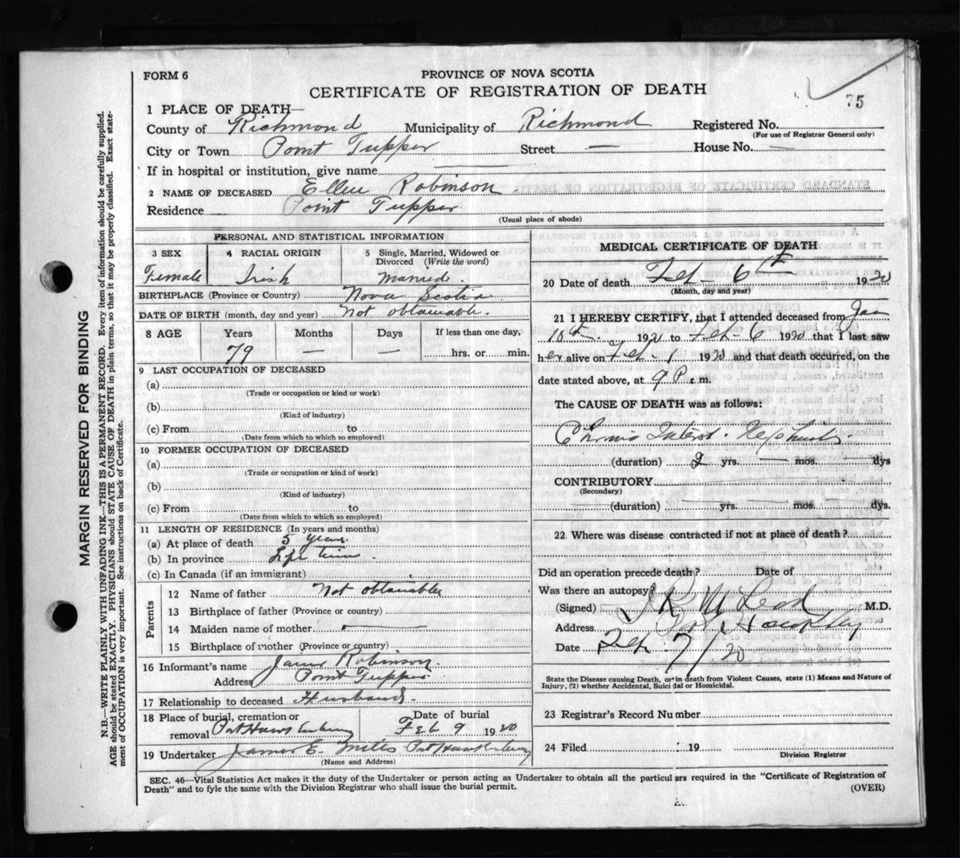 FORM 6
PROVINCE OF NOVA SCOTIA
CERTIFICATE OF REGISTRATION OF DEATH
75
1 PLACE OF DEATH—
County of Richmond Municipality of Richmond Registered No.
(For use of Registrar General only)
City or Town Point Tupper Street — House No. —
If in hospital or institution, give name
2 NAME OF DECEASED Ellen Robinson
Residence Point Tupper
(Usual place of abode)
PERSONAL AND STATISTICAL INFORMATION
3 SEX 4 RACIAL ORIGIN 5 Single, Married, Widowed or Divorced (Write the word)
Female Irish Married.
BIRTHPLACE (Province or Country) Nova Scotia
DATE OF BIRTH (month, day and year) Not obtainable.
8 AGE Years Months Days If less than one day,
79 — — hrs. or min.
9 LAST OCCUPATION OF DECEASED
(a)
(Trade or occupation or kind or work)
(b)
(Kind of industry)
(c) From to
(Date from which to which so employed)
10 FORMER OCCUPATION OF DECEASED
(a)
(Trade or occupation or kind of work)
(b)
(Kind of industry)
(c) From to
(Date from which to which so employed)
11 LENGTH OF RESIDENCE (In years and months)
(a) At place of death 5 years
(b) In province Life time
(c) In Canada (if an immigrant)
Parents
12 Name of father Not obtainable
13 Birthplace of father (Province or country)
14 Maiden name of mother —
15 Birthplace of mother (Province or country)
16 Informant's name James Robinson.
Address Point Tupper
17 Relationship to deceased Husband
18 Place of burial, cremation or removal Port Hawkesbury Date of burial Feb 9 1920
19 Undertaker James E. Mills Port Hawkesbury
(Name and Address)
MEDICAL CERTIFICATE OF DEATH
20 Date of death Feb - 6th 1920
(Month, day and year)
21 I HEREBY CERTIFY, that I attended deceased from Jan
1920 to Feb - 6 1920 that I last saw
her alive on Feb - 1 1920 and that death occurred, on the
date stated above, at 9 P. m.
The CAUSE OF DEATH was as follows:
Chronic Interst. Nephritis.
(duration) 2 yrs. — mos. — dys
CONTRIBUTORY
(Secondary)
(duration) — yrs. — mos. — dys.
22 Where was disease contracted if not at place of death?
Did an operation precede death? Date of
Was there an autopsy?
(Signed) M.D.
Address Port Hawkesbury
Date Feb 7/20
State the Disease causing Death, or in death from Violent Causes, state (1) Means and Nature of
Injury, (2) whether Accidental, Suicidal or Homicidal.
23 Registrar's Record Number
24 Filed 19
Division Registrar
SEC. 46—Vital Statistics Act makes it the duty of the Undertaker or person acting as Undertaker to obtain all the particulars required in the "Certificate of Registration of
Death" and to fyle the same with the Division Registrar who shall issue the burial permit.
(OVER)
MARGIN RESERVED FOR BINDING
N.B.—WRITE PLAINLY WITH UNFADING INK—THIS IS A PERMANENT RECORD. Every item of information should be carefully supplied.
AGE should be stated EXACTLY. PHYSICIANS should STATE CAUSE OF DEATH in plain terms, so that it may be properly classified. Exact state-
ment of OCCUPATION is very important. See instructions on back of Certificate.